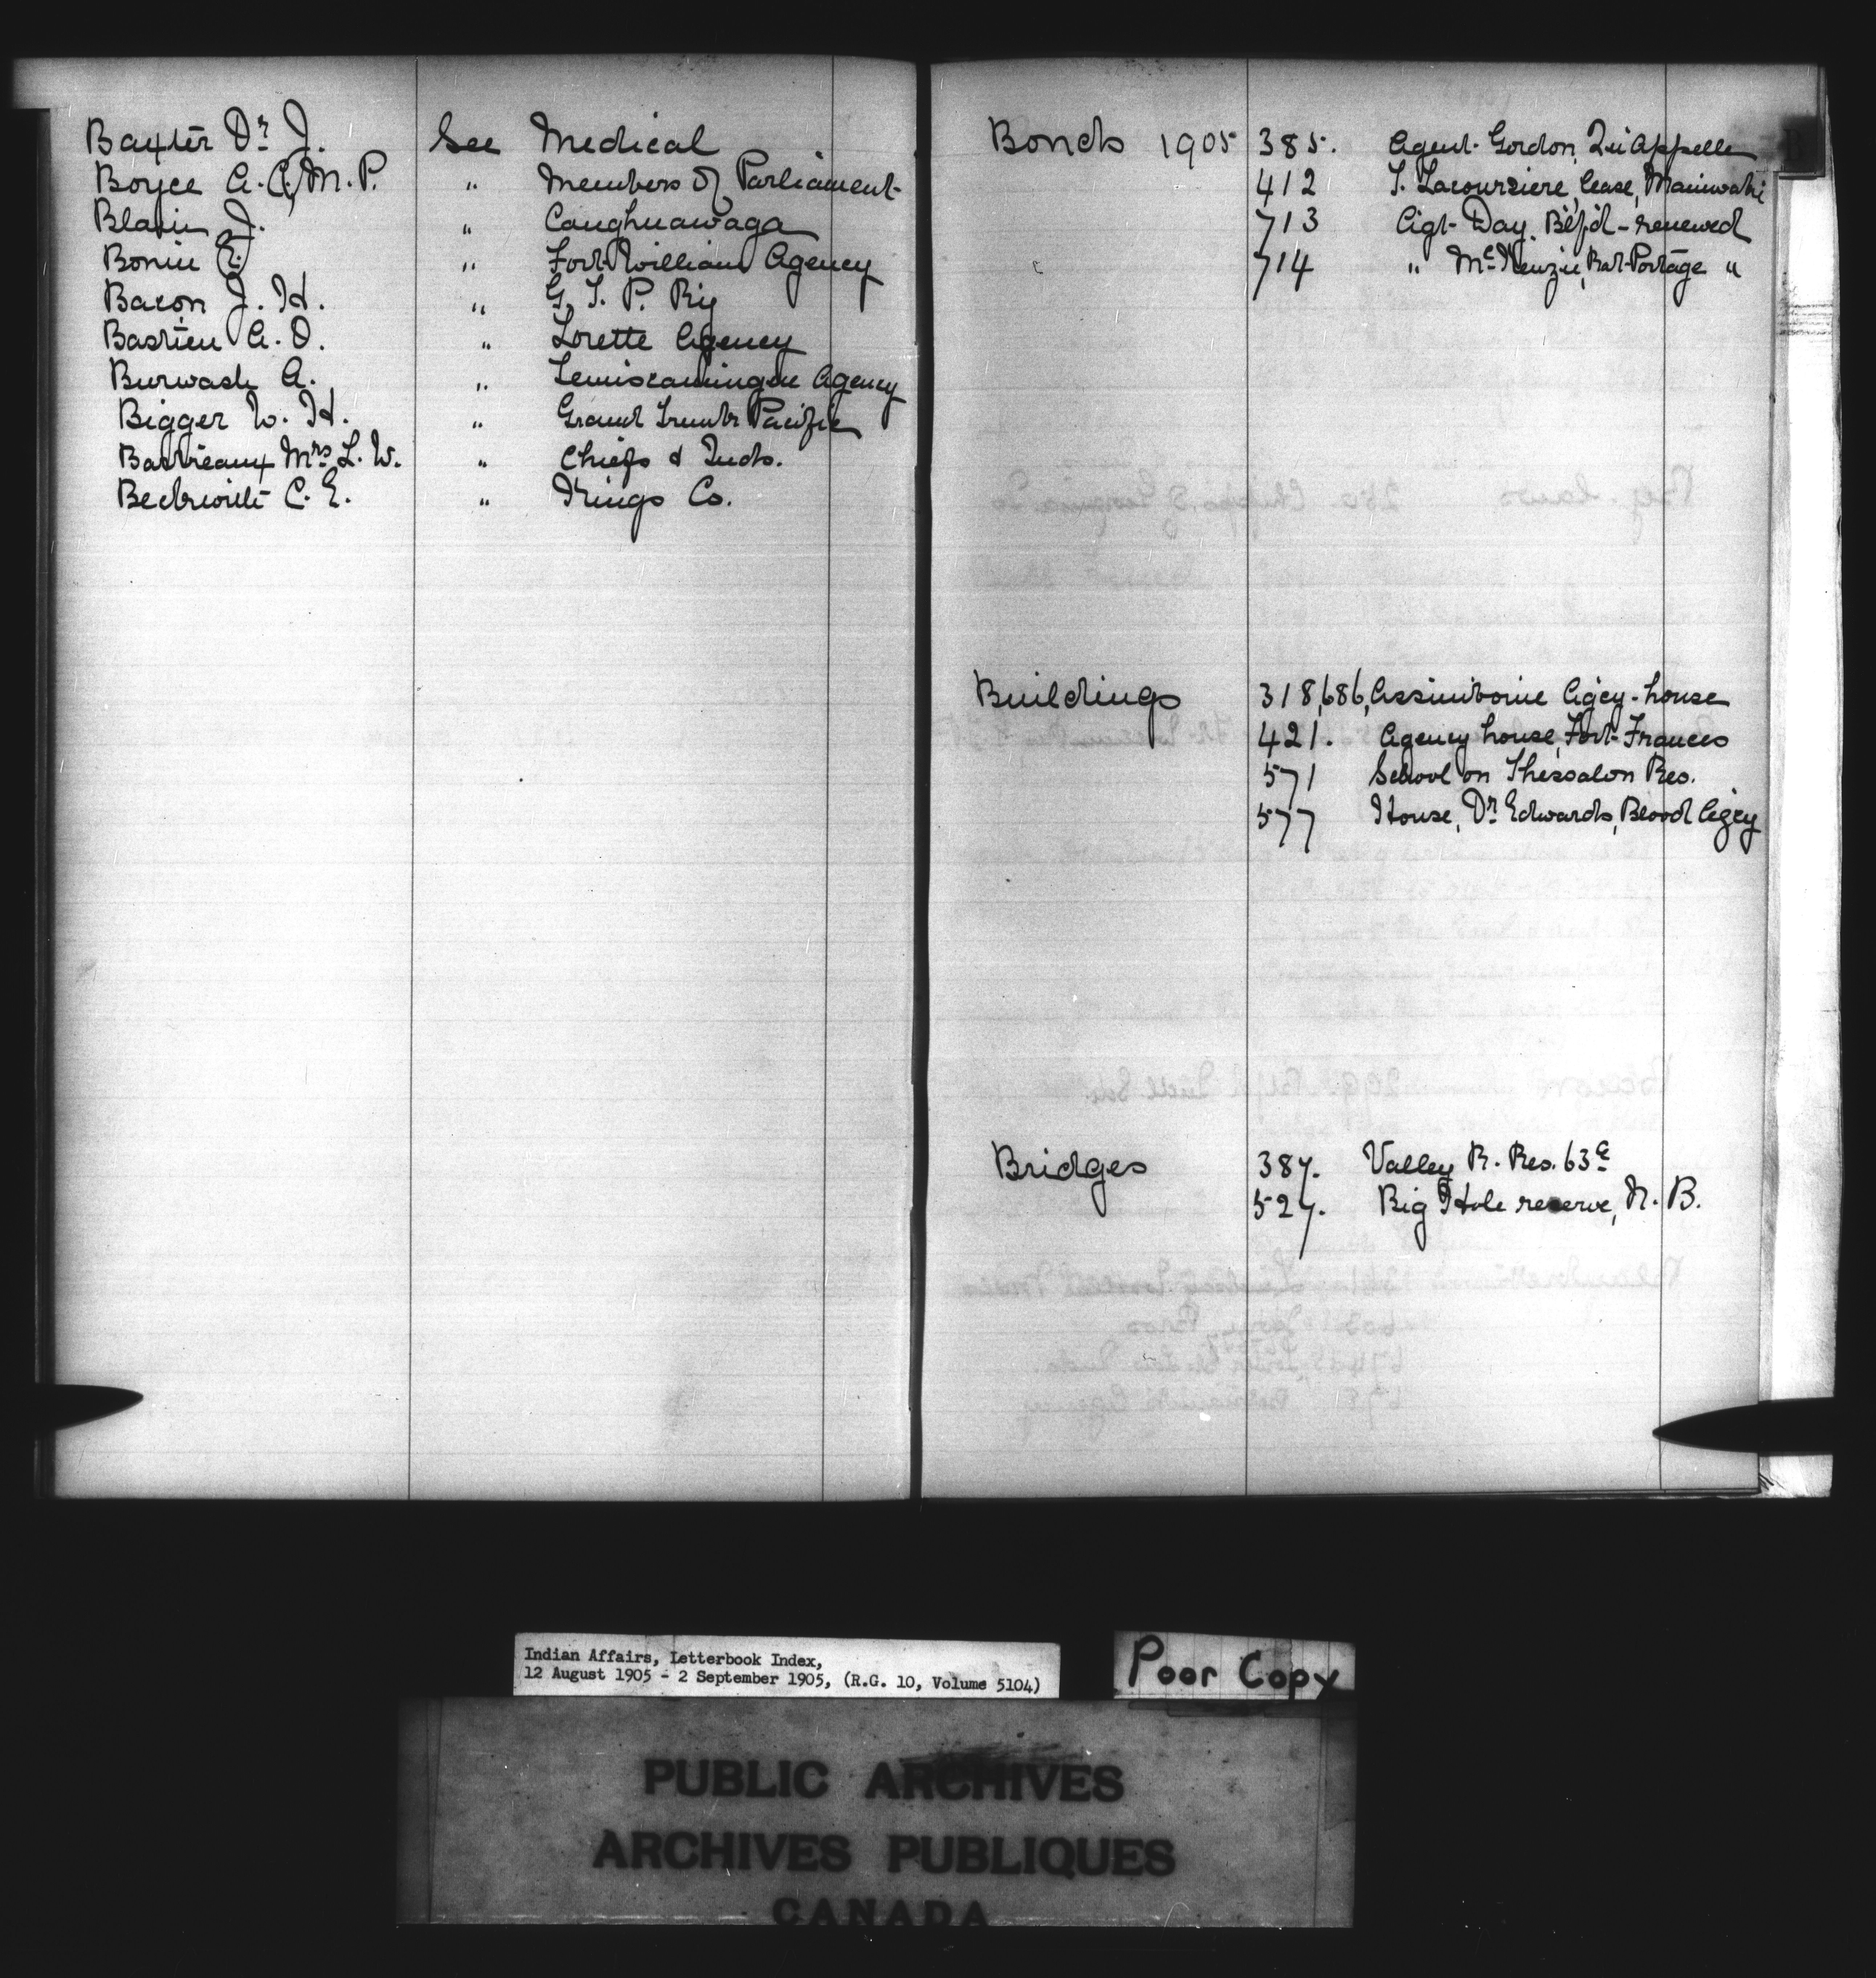 Baxter Dr J. See Medical
Boyce A. A, M. P. " Members of Parliament
Blain J. " Caughnawaga
Bonin E. " Fort William Agency
Bacon J. H. " G. T. P. Ry
Bastien A. O. " Lorette Agency
Burwash A. " Temiscamingue Agency
Bigger W. H. " Grand Trunk Pacific
Mrs L. W. " Chiefs & Inds.
Beckwith C. E. " Kings Co.
Bonds 1905 385. Agent Gordon, Qu'Appelle
412 T. Lacoursiere, lease, Maniwaki
713 Agt Day. Btl'fd - renewed
714 " McKenzie, Rat Portage "
Buildings 318,686, Assiniboine Agcy - house
421. Agency house, Fort Frances
571 School on Thessalon Res.
577 House, Dr Edwards, Blood Agcy
Bridges 387. Valley R. Res. 63a
527. Big Hole reserve, N. B.
Indian Affairs, Letterbook Index,
12 August 1905 - 2 September 1905, (R.G. 10, Volume 5104)
Poor Copy
PUBLIC ARCHIVES
ARCHIVES PUBLIQUES
CANADA